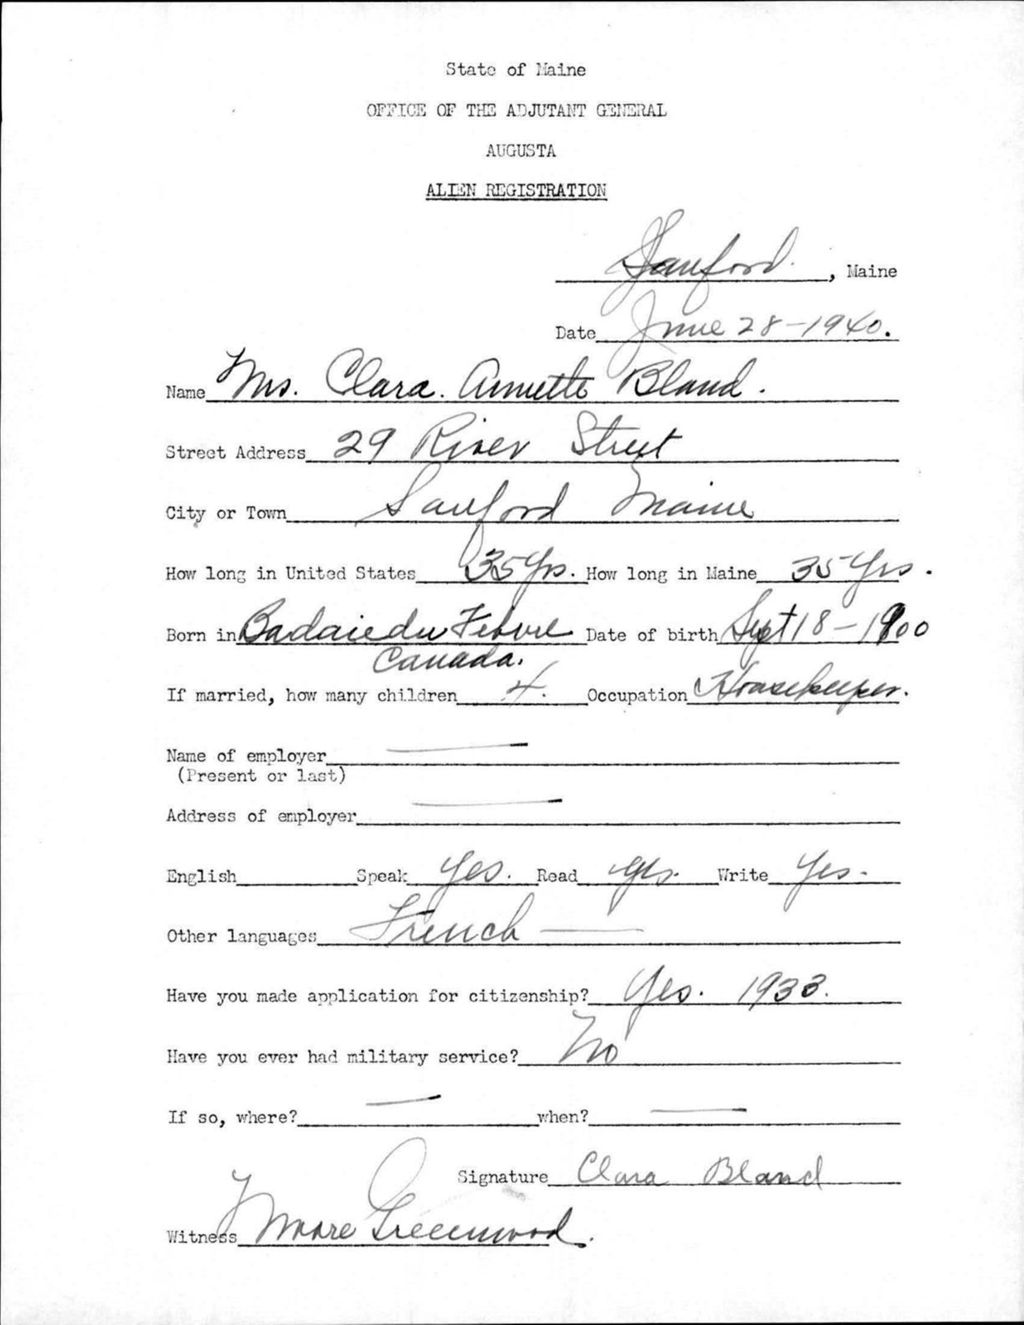 State of Maine
OFFICE OF THE ADJUTANT GENERAL
AUGUSTA
ALIEN REGISTRATION
Sanford, Maine
Date June 28-1940.
Name Mrs. Clara. Annette Bland.
Street Address 29 River Street
City or Town Sanford Maine
How long in United States 35 Yrs. How long in Maine 35 Yrs.
Born in Date of birth Sept 18-1900
Canada.
If married, how many children 4. Occupation Housekeeper.
Name of employer
(Present or last)
Address of employer
English Speak Yes. Read yes. Write Yes-
Other languages French —
Have you made application for citizenship? Yes. 1933.
Have you ever had military service? No
If so, where? when?
Signature Clara Bland
Witness Greenwood.